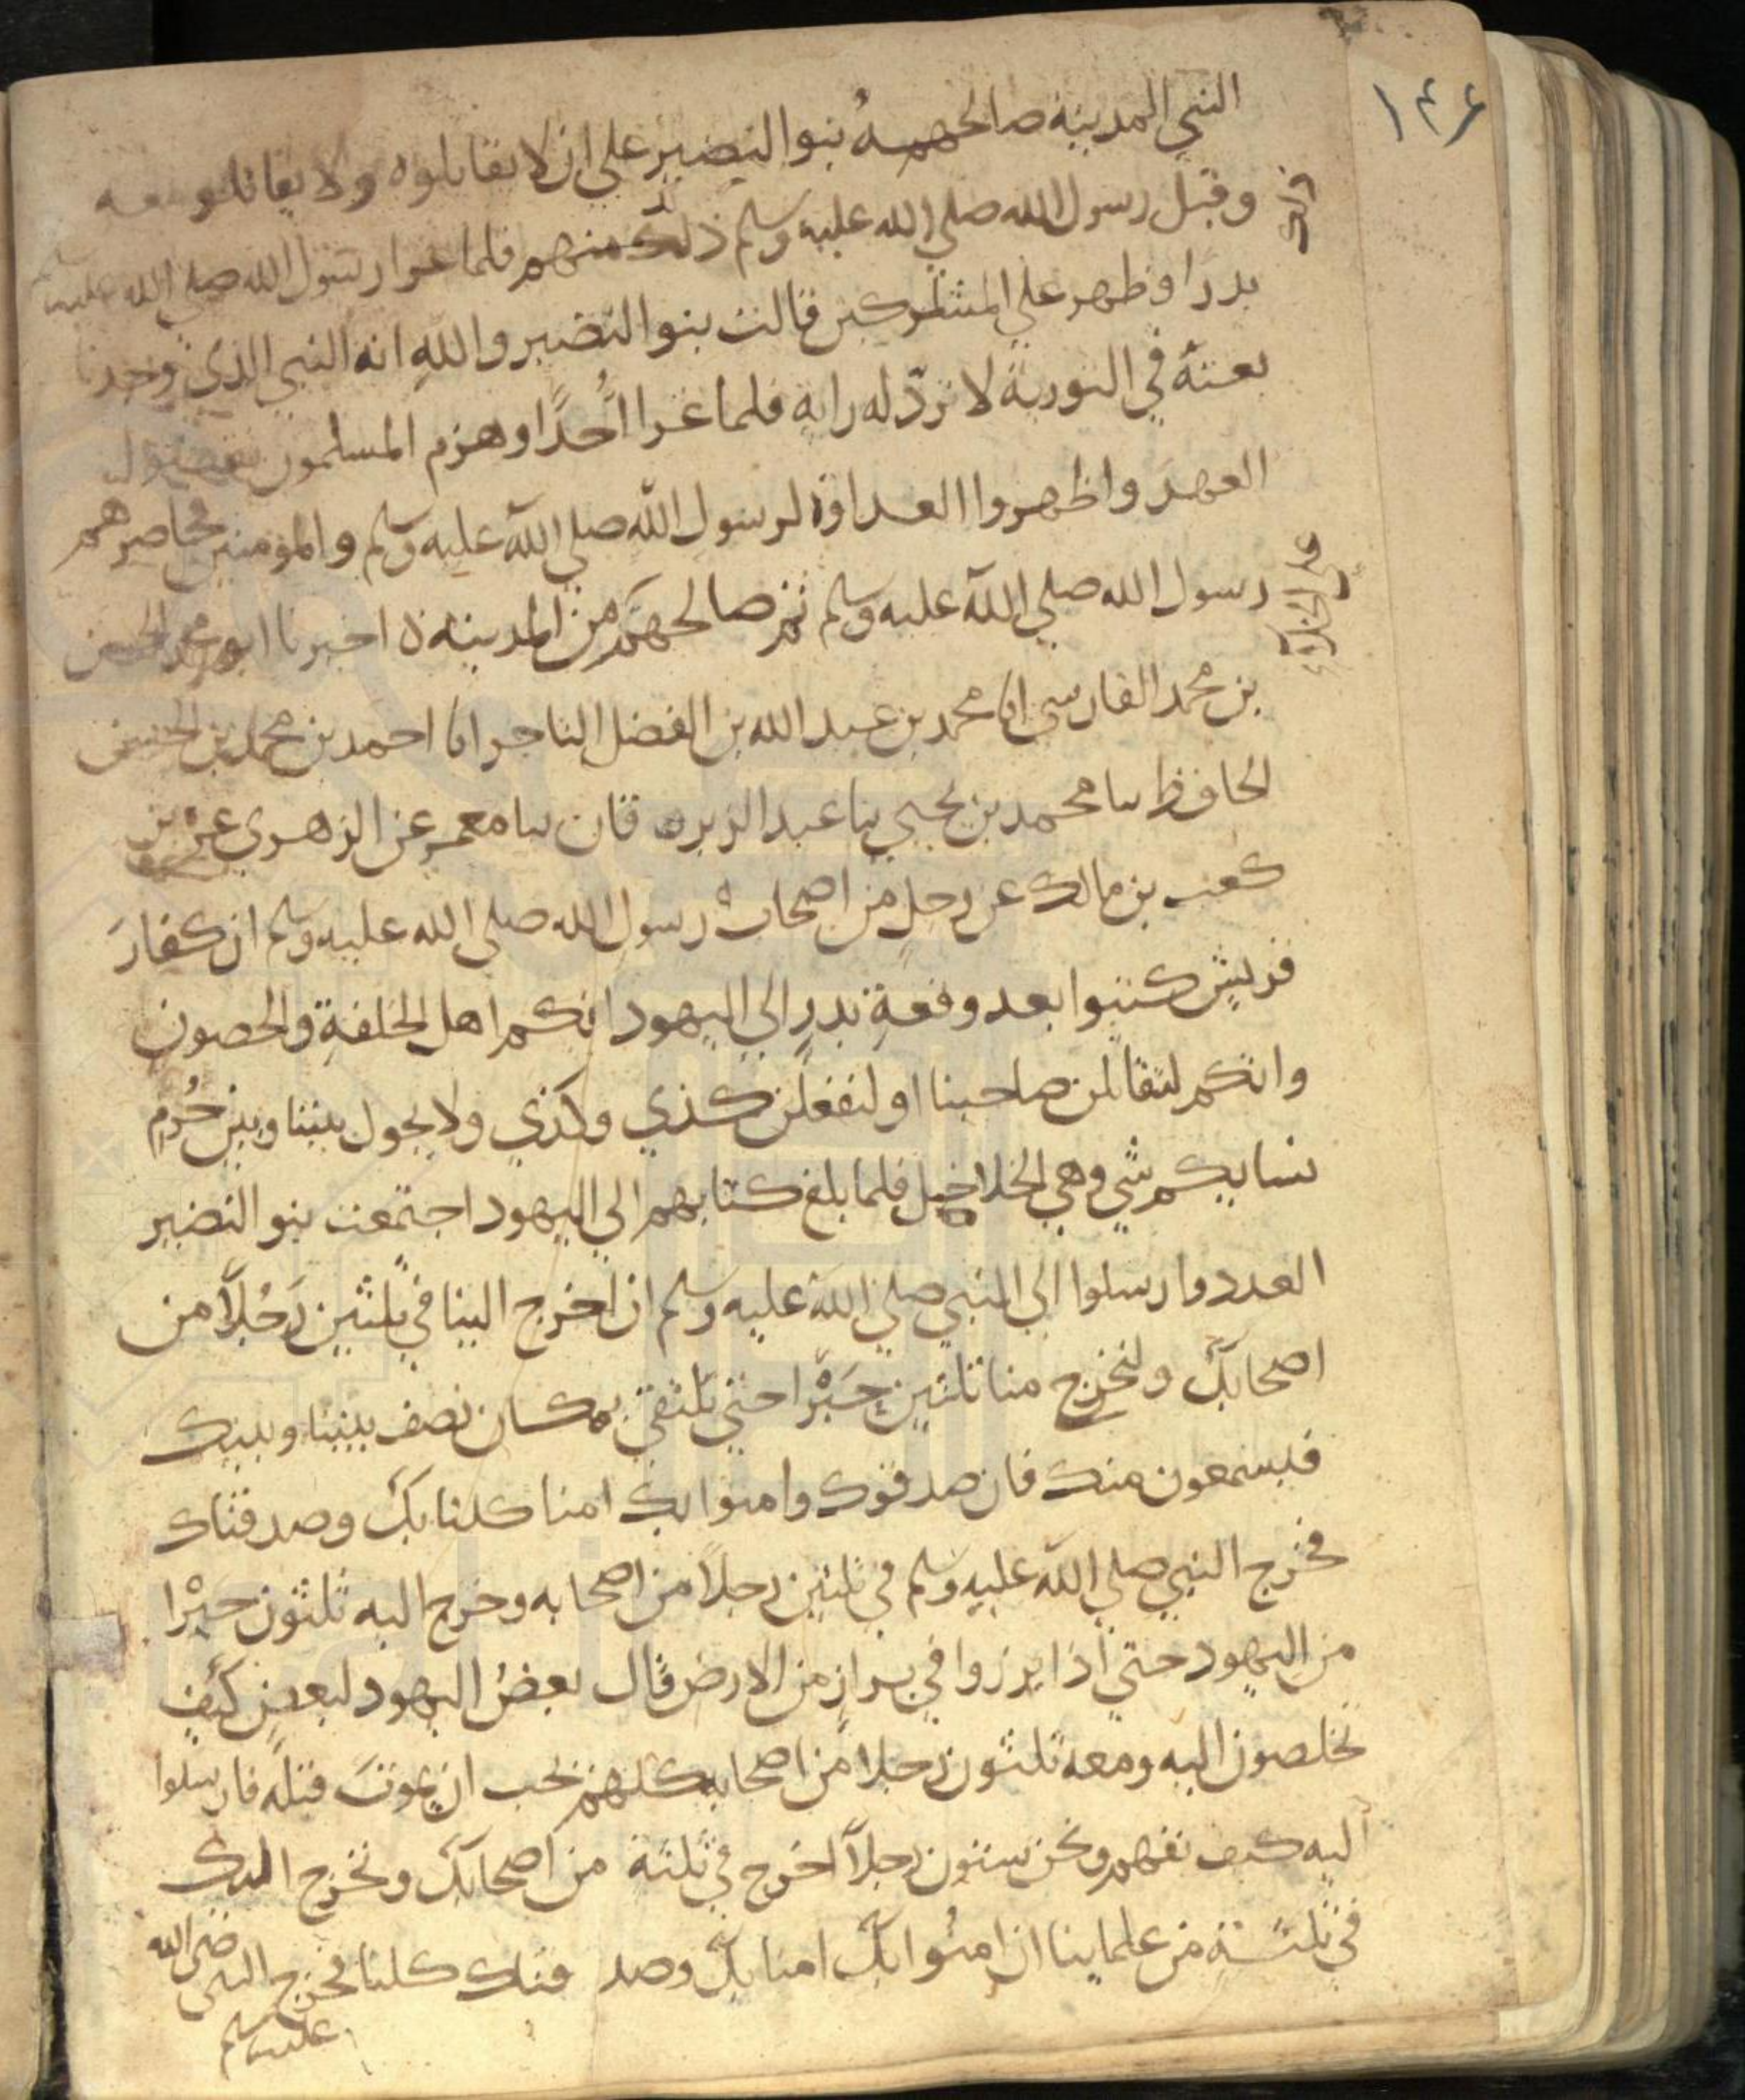 ١٤٦
النبي المدينة صالحه بنو النضير على ان لا يقاتلوه ولا يقاتلو معه
وقبل رسول الله صلي الله عليه وسلم ذلك منهم فلما غزا رسول الله صلي الله عليه وسلم
بدرا وظهر علي المشركين قالت بنو النضير والله انه النبي الذي وجدنا
نعته في التورية لا تردّ له راية فلما غزا اُحُدًا وهزم المسلمون
العهد واظهروا العداوة لرسول الله صلي الله عليه وسلم والمؤمنين فحاصرهم
رسول الله صلي الله عليه وسلم ثم صالحهم من المدينة ه اخبرنا ابو محمد الحسن
علي الجلاء
بن محمد الفارسي انا محمد بن عبد الله بن الفضل التاجر انا احمد بن محمد بن الحسن
الحافظ نا محمد بن يحيي نا عبد الرزاق نا معمر عن الزهري عن بن
كعب بن مالك عن رجل من اصحاب رسول الله صلي الله عليه وسلم ان كفارَ
قريش كتبوا بعد وقعةِ بدرٍ الي اليهود انكم اهل الحلقةِ والحصون
وانكم لتقاتلن صاحبنا او لنفعلن كذي وكذي ولا يحول بيننا وبين خُدَم
نسايكم شي وهي الخلاخيل فلما بلغ كتابهم الي اليهود اجتمعت بنو النضير
الغدر وارسلوا الي النبي صلي الله عليه وسلم ان اخرج الينا في ثلثين رَجُلًا من
اصحابك ولنخرج منا ثلثين حَبْرًا حتي نلتقي بمكان نصف بيننا وبينك
فيسمعون منك فان صدقوك وامنوا بك امنا كلنا بك وصدقناك
فخرج النبي صلي الله عليه وسلم في ثلثين رجلًا من اصحابه وخرج اليه ثلثون حبْرا
من اليهود حتي اذا برزوا في برازٍ من الارض قال بعضُ اليهود لبعضٍ كيف
تخلصون اليه ومعه ثلثون رجلا من اصحابه كلهم يحب ان يموتَ قبله فارسلوا
اليه كيف نفهم ونحن ستون رجلًا اخرج في ثلثة من اصحابك ونخرج اليك
في ثلثةٍ من علماينا ان امنُوا بك امنا بك وصدقناك كلنا فخرج النبي صلى الله
عليه وسلم